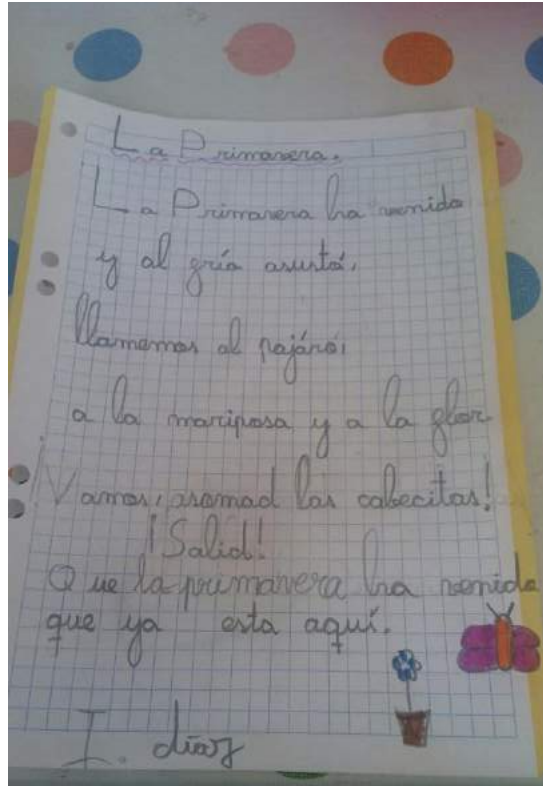 La Primavera.
La Primavera ha venido
y al frío asustó,
llamemos al pajáro,
a la mariposa y a la flor.
Vamos, asomad las cabecitas!
¡Salid!
Que la primavera ha venido
que ya esta aquí.
I. díaz